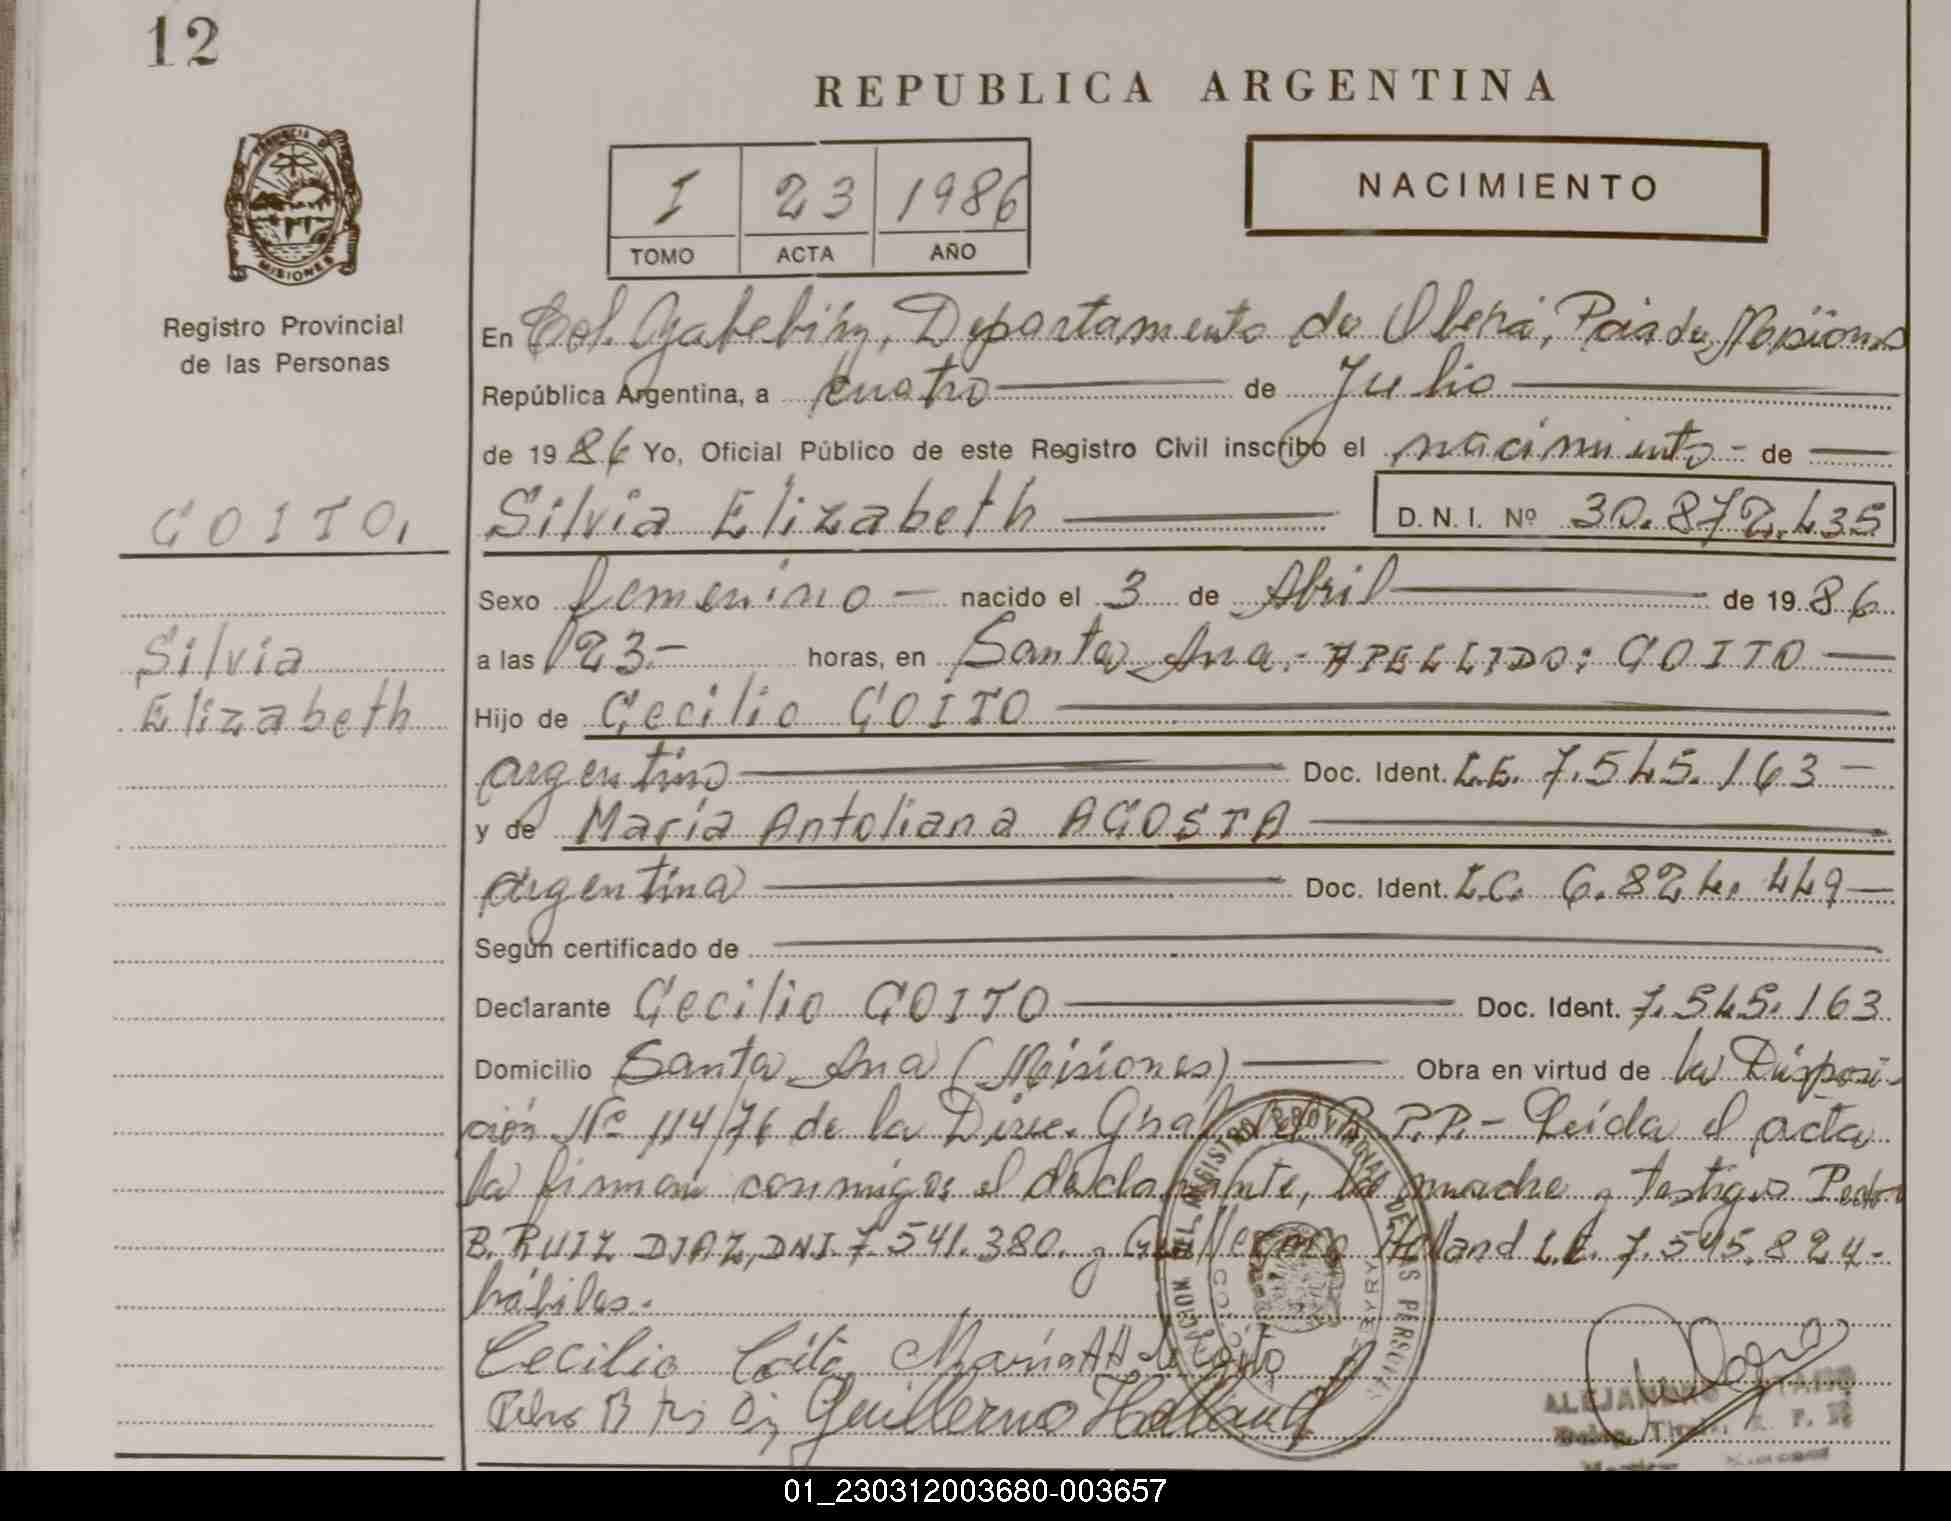 12
REPUBLICA ARGENTINA
PROVINCIA
MISIONES
Registro Provincial
de las Personas
I 23 1986
TOMO ACTA AÑO
NACIMIENTO
En Col. Departamento de Oberá, Pcia de Misiones
República Argentina, a cuatro de Julio
de 1986 Yo, Oficial Público de este Registro Civil inscribo el nacimiento - de
GOITO,
Silvia Elizabeth D.N.I. Nº 30.872.435
Silvia
Elizabeth
Sexo femenino - nacido el 3 de Abril de 1986
a las 23- horas, en Santa Ana.- APELLIDO: GOITO
Hijo de Cecilio GOITO
argentino Doc. Ident. L.E. 7.545.163 -
y de María Antoliana ACOSTA
argentina Doc. Ident. L.C. 6.824.449
Según certificado de
Declarante Cecilio GOITO Doc. Ident. 7.545.163
Domicilio Santa Ana (Misiones) Obra en virtud de la Disposi-
ción Nº 114/76 de la Direc. Gral R.P.P.- Leída el acta
la firman conmigo: el declarante, la madre y testigos Pedro
B. RUIZ DIAZ, DNI. 7.541.380. y Guillermo Holland L.E. 7.545.824-
hábiles.
Cecilio Goito María A A de Goito
Guillermo Holland
REGISTRO PROVINCIAL DE LAS PERSONAS
01_230312003680-003657